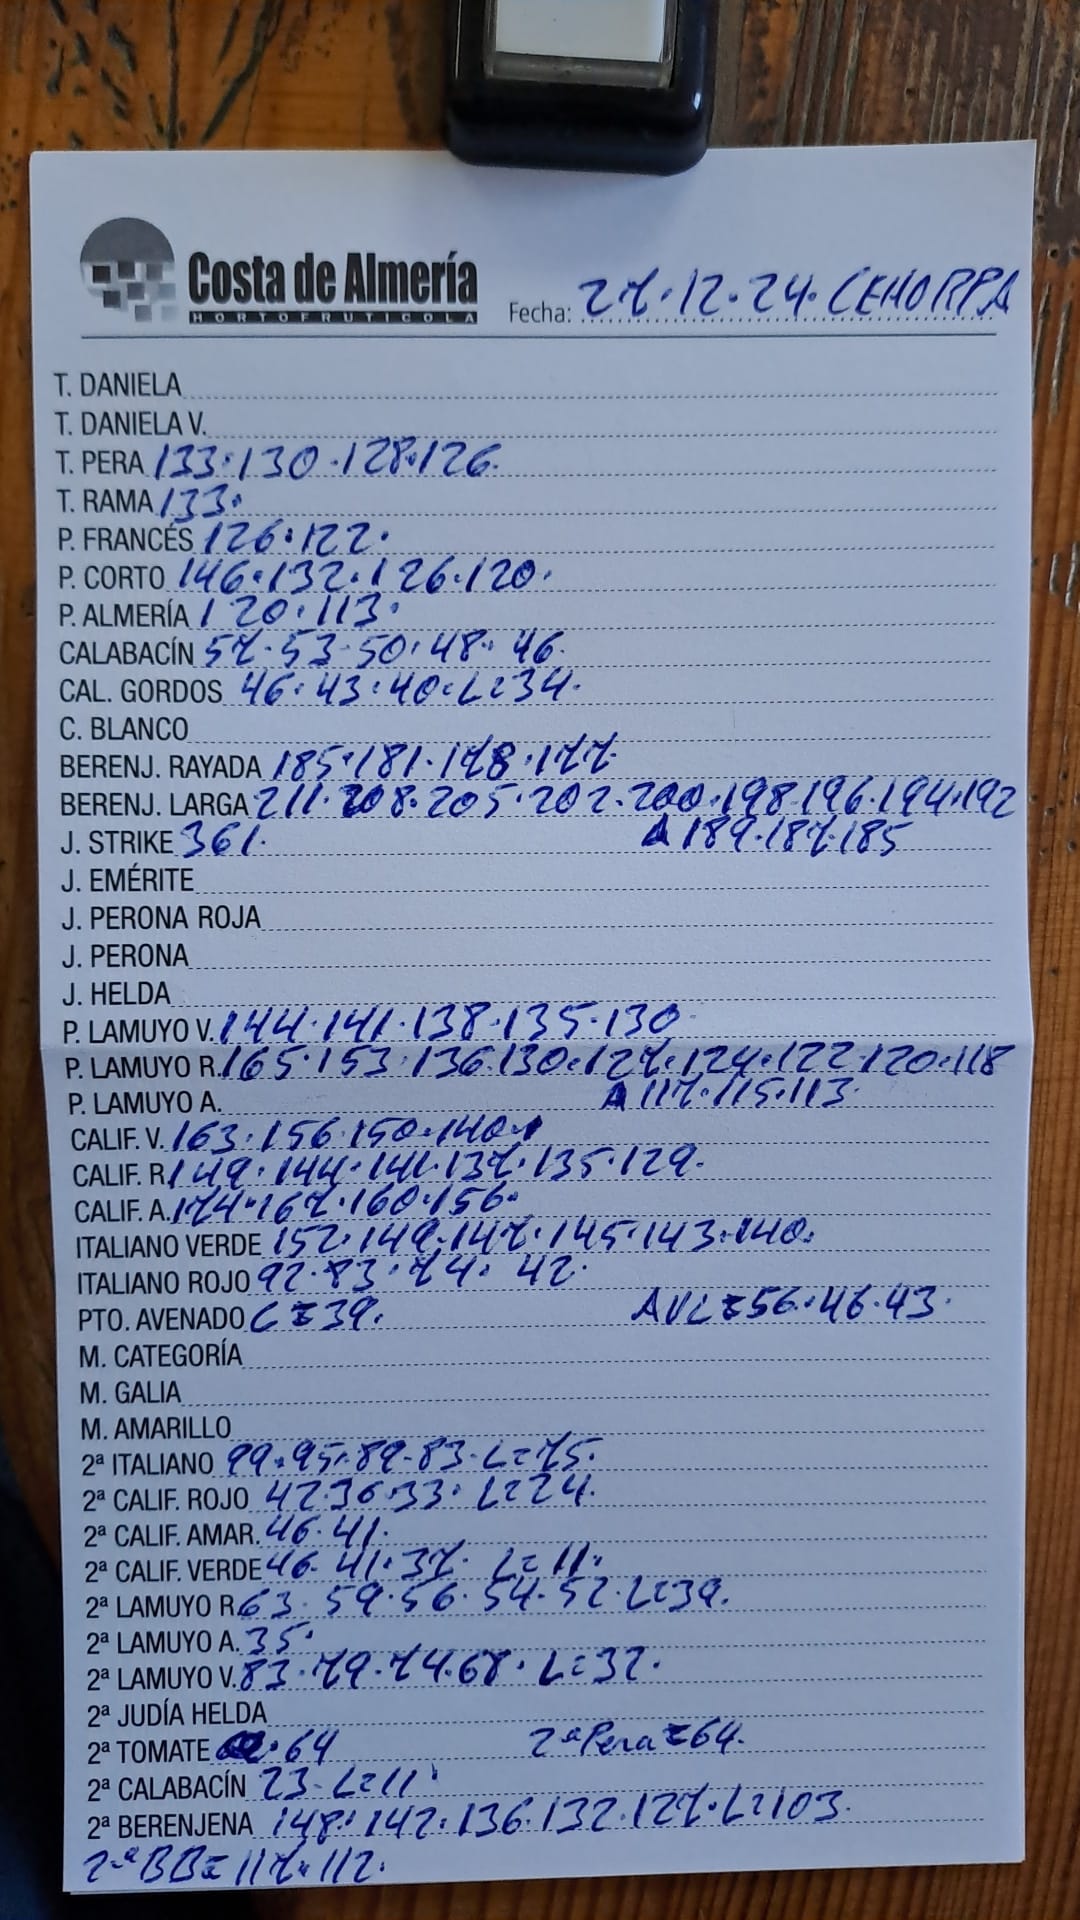 Costa de Almería
HORTOFRUTICOLA
Fecha: 27.12.24. CEHORPA
T. DANIELA
T. DANIELA V.
T. PERA 133.130.128.126.
T. RAMA 133.
P. FRANCÉS 126.122.
P. CORTO 146.132.126.120.
P. ALMERÍA 120.113.
CALABACÍN 57.53.50.48.46.
CAL. GORDOS 46.43.40.L=34.
C. BLANCO
BERENJ. RAYADA 185.181.178.177.
BERENJ. LARGA 211.208.205.202.200.198.196.194.192
J. STRIKE 361. A 189.187.185
J. EMÉRITE
J. PERONA ROJA
J. PERONA
J. HELDA
P. LAMUYO V. 144.141.138.135.130
P. LAMUYO R. 165.153.136.130.127.124.122.120.118
P. LAMUYO A. A 117.115.113.
CALIF. V. 163.156.150.140.
CALIF. R. 149.144.141.137.135.129.
CALIF. A. 174.167.160.156.
ITALIANO VERDE 152.149.147.145.143.140.
ITALIANO ROJO 92.83.74. 42.
PTO. AVENADO C=39. AVL=56.46.43.
M. CATEGORÍA
M. GALIA
M. AMARILLO
2ª ITALIANO 99.95.89.83.L=75.
2ª CALIF. ROJO 42.36.33. L=24.
2ª CALIF. AMAR. 46.41.
2ª CALIF. VERDE 46.41.37. L=11.
2ª LAMUYO R. 63.59.56.54.52.L=39.
2ª LAMUYO A. 35.
2ª LAMUYO V. 83.79.74.68. L=32.
2ª JUDÍA HELDA
2ª TOMATE .64 2ªPera=64.
2ª CALABACÍN 23.L=11.
2ª BERENJENA 148.142.136.132.127.L=103.
2ªBB=117.112.